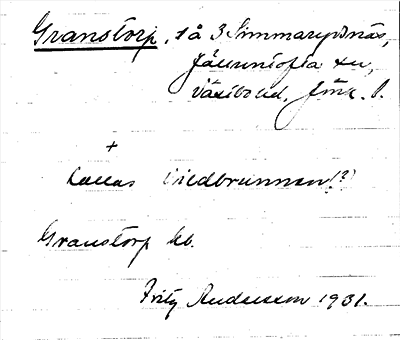 Granstorp, s å 3 Simmarydsnäs,
Järsnntofta sn,
Västbo hd, Jönk. l.
+
kallas Vildbrunnen(?)
Granstorp hb.
Fritz Andersson 1931.